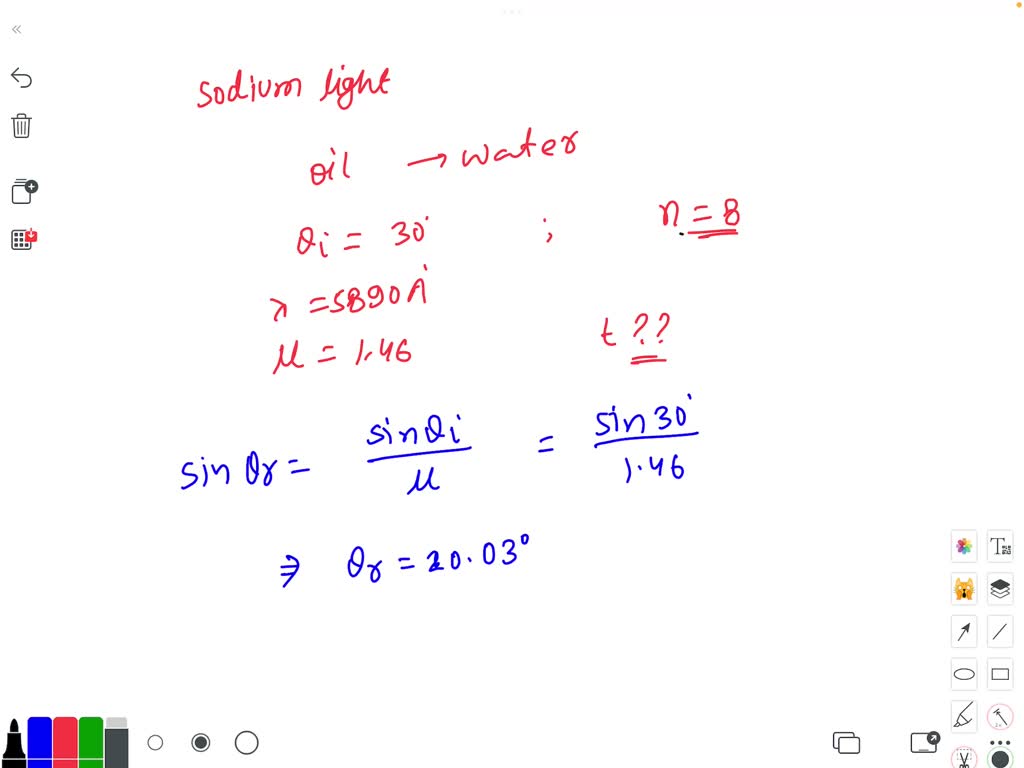 sodium light
oil → water
θi = 30° ; n = 8
λ = 5890 A°
μ = 1.46 t ??
sin θr = sin θi / μ = sin 30° / 1.46
⇒ θr = 20.03°